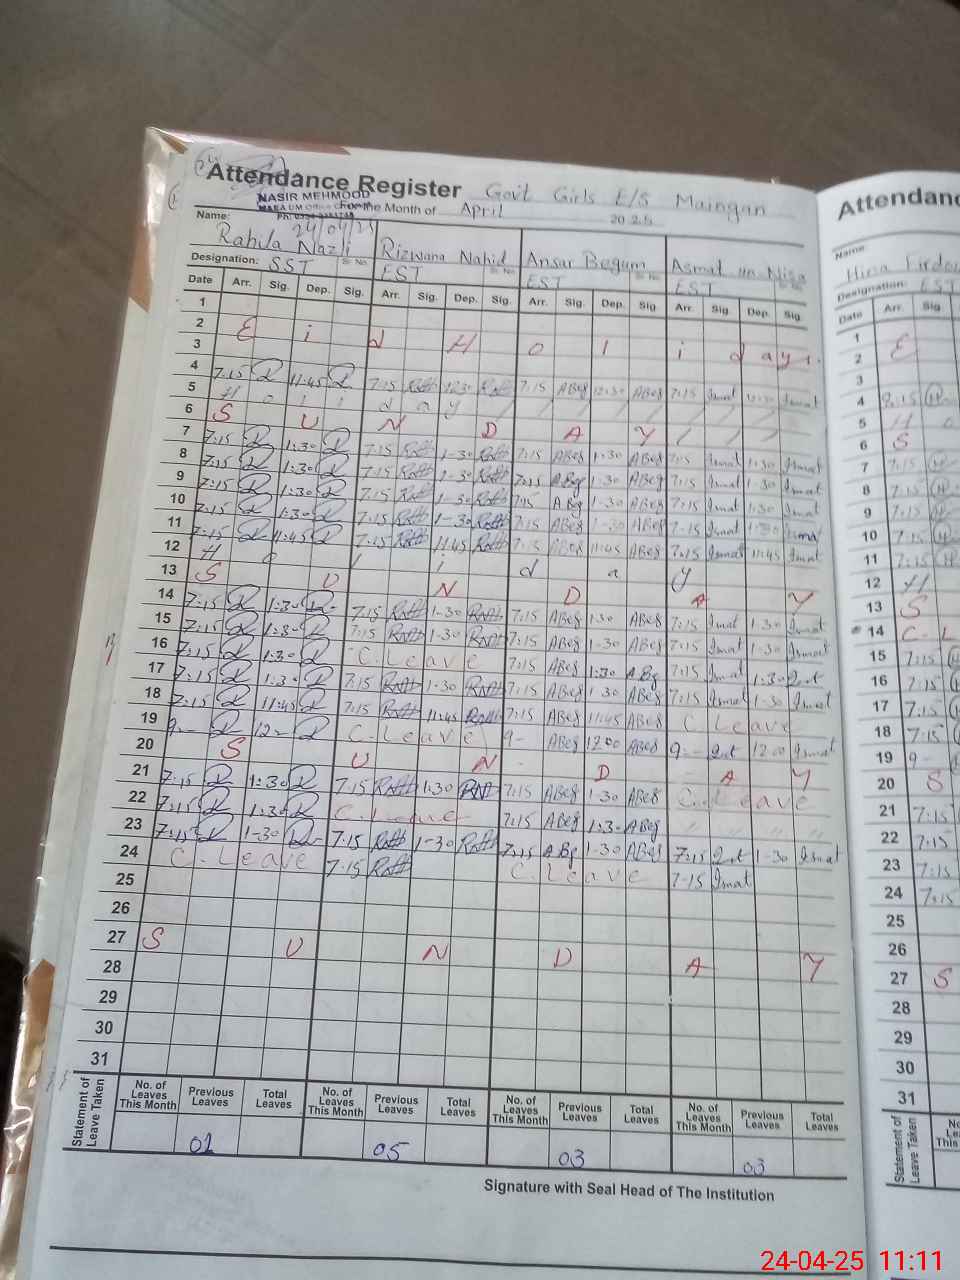 Attendance Register Govt Girls E/S Maingan
NASIR MEHMOOD
For the Month of April 2025
24/04/25
Name: Rahila Nazli Rizwana Nahid Ansar Begum Asmat un Nisa
Designation: SST Sr. No. EST Sr. No. EST Sr. No. EST
Date Arr. Sig. Dep. Sig. Arr. Sig. Dep. Sig. Arr. Sig. Dep. Sig. Arr. Sig. Dep. Sig.
1
2 E i d H o l i d a y s.
3
4 7:15 11:45 7:15 12:30 7:15 ABeg 12:30 ABeg 7:15 Ismat 12:30 Ismat
5 H o l i d a y / / / / / / /
6 S U N D A Y / / /
7 7:15 1:30 7:15 1-30 7:15 ABeg 1:30 ABeg 7:15 Ismat 1:30 Ismat
8 7:15 1:30 7:15 1-30 7:15 ABeg 1-30 ABeg 7:15 Ismat 1-30 Ismat
9 7:15 1:30 7:15 1-30 7:15 ABeg 1-30 ABeg 7:15 Ismat 1:30 Ismat
10 7:15 1:30 7:15 1-30 7:15 ABeg 1-30 ABeg 7:15 Ismat 1:30 Ismat
11 7:15 11:45 7:15 11:45 7:15 ABeg 11:45 ABeg 7:15 Ismat 11:45 Ismat
12 H o l i d a y
13 S U N D A Y
14 7:15 1:30 7:15 1-30 7:15 ABeg 1:30 ABeg 7:15 Ismat 1-30 Ismat
15 7:15 1:30 7:15 1-30 7:15 ABeg 1-30 ABeg 7:15 Ismat 1-30 Ismat
16 7:15 1:30 C. Leave 7:15 ABeg 1:30 ABeg 7:15 Ismat 1:30
17 7:15 1:30 7:15 1-30 7:15 ABeg 1-30 ABeg 7:15 Ismat 1-30 Ismat
18 7:15 11:45 7:15 11:45 7:15 ABeg 11:45 ABeg C. Leave
19 9- 12- C. Leave 9- ABeg 12:00 ABeg 9- 12:00 Ismat
20 S U N D A Y
21 7:15 1:30 7:15 1:30 7:15 ABeg 1-30 ABeg C. Leave
22 7:15 1:30 C. Leave 7:15 ABeg 1:30 ABeg " " " "
23 7:15 1-30 7:15 1-30 7:15 ABeg 1-30 ABeg 7:15 1-30 Ismat
24 C. Leave 7:15 C. Leave 7-15 Ismat
25
26
27 S U N D A Y
28
29
30
31
Statement of Leave Taken
No. of Leaves This Month Previous Leaves Total Leaves No. of Leaves This Month Previous Leaves Total Leaves No. of Leaves This Month Previous Leaves Total Leaves No. of Leaves This Month Previous Leaves Total Leaves
02 05 03 03
Signature with Seal Head of The Institution
Attendanc
Name:
Hina Firdou
Designation: EST
Date Arr. Sig.
1
2 E
3
4 8:15
5 H o
6 S
7 7:15
8 7:15
9 7:15
10 7:15
11 7:15
12 H
13 S
14 C. L
15 7:15
16 7:15
17 7:15
18 7:15
19 9-
20 S
21 7:15
22 7:15
23 7:15
24 7:15
25
26
27 S
28
29
30
31
Statement of Leave Taken
24-04-25 11:11